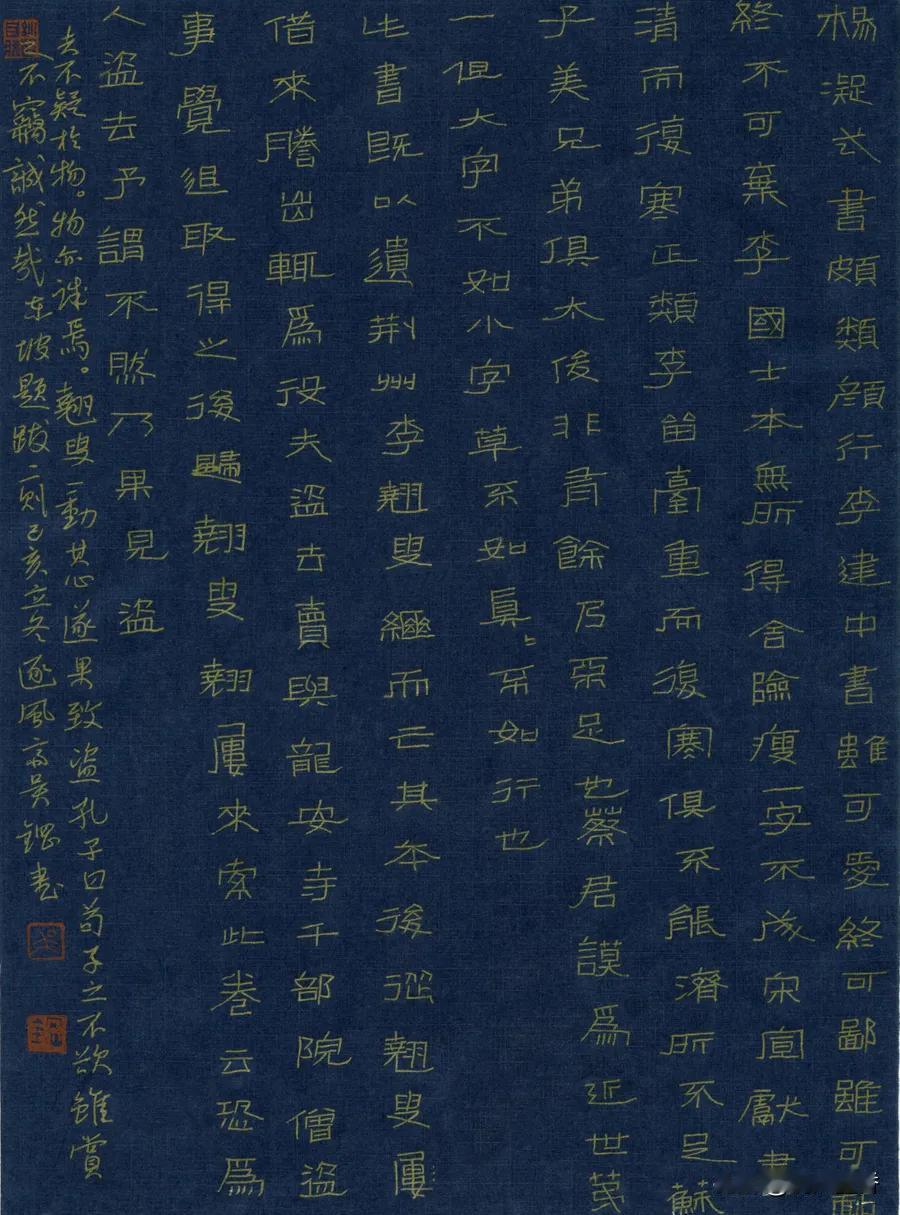 楊凝式書頗類顏行李建中書雖可愛終可鄙雖可鄙
終不可棄李國士本無所得舍險瘦一字不成宋宣獻書
清而復寒正類李留臺重而復寒俱不能濟所不足蘇
子美兄弟俱太俊非有餘乃不足也蔡君謨為近世第
一但大字不如小字草不如真〻不如行也
此書既以遺荊州李翹叟繼而亡其本後從翹叟屢
借來謄出輒為役夫盜去賣與龍安寺千部院僧盜
事覺追取得之後歸翹叟翹叟屢來索此卷云恐為
人盜去予謂不然乃果見盜
去不疑於物。物亦誠焉。翹叟一動其心遂果致盜孔子曰苟子之不欲雖賞
之不竊誠然哉東坡題跋二則己亥立冬逐風齋吳鍶書